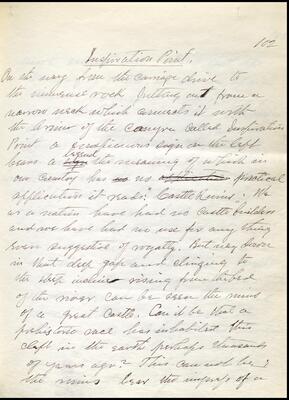 102
Inspiration Point.
On the way from the carriage drive to
the universal rock jutting out from a
narrow neck which connects it with
the border of the canyon called Inspiration
Point a conspicuous sign on the left
bears a legend the meaning of which in
our country has no no practical
application it reads: "Castle Ruins". We
as a nation have had no Castle builders
and we have had no use for any thing
even suggestive of royalty. But way down
in that deep gap and clinging to
the steep incline rising from the bed
of the river can be seen the ruins
of a great Castle. Can it be that a
prehistoric race has inhabited this
cleft in the earth perhaps thousands
of years ago? This can not be;
the ruins bear the impress of a